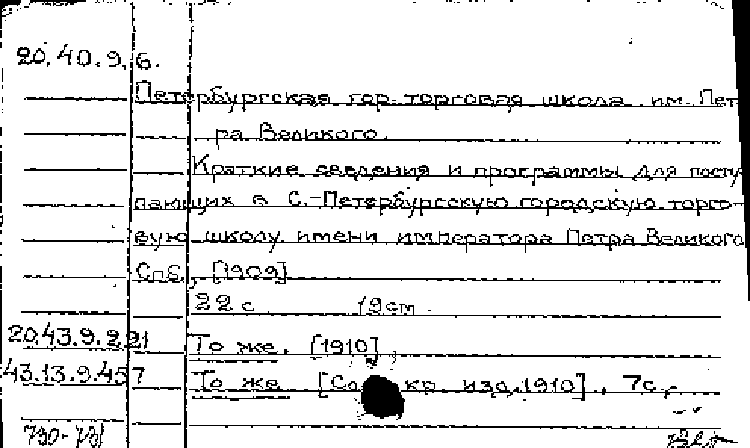 20.40.9.6.
Петербургская гор. торговая школа им. Пет
ра Великого.
Краткие сведения и программы для посту
пающих в С.-Петербургскую городскую торго-
вую школу имени императора Петра Великого
Спб., [1909]
22 с 19 см.
20.43.9.221 То же. [1910],
43.13.9.457 То же. [Со кр. изд. 1910]., 7с,